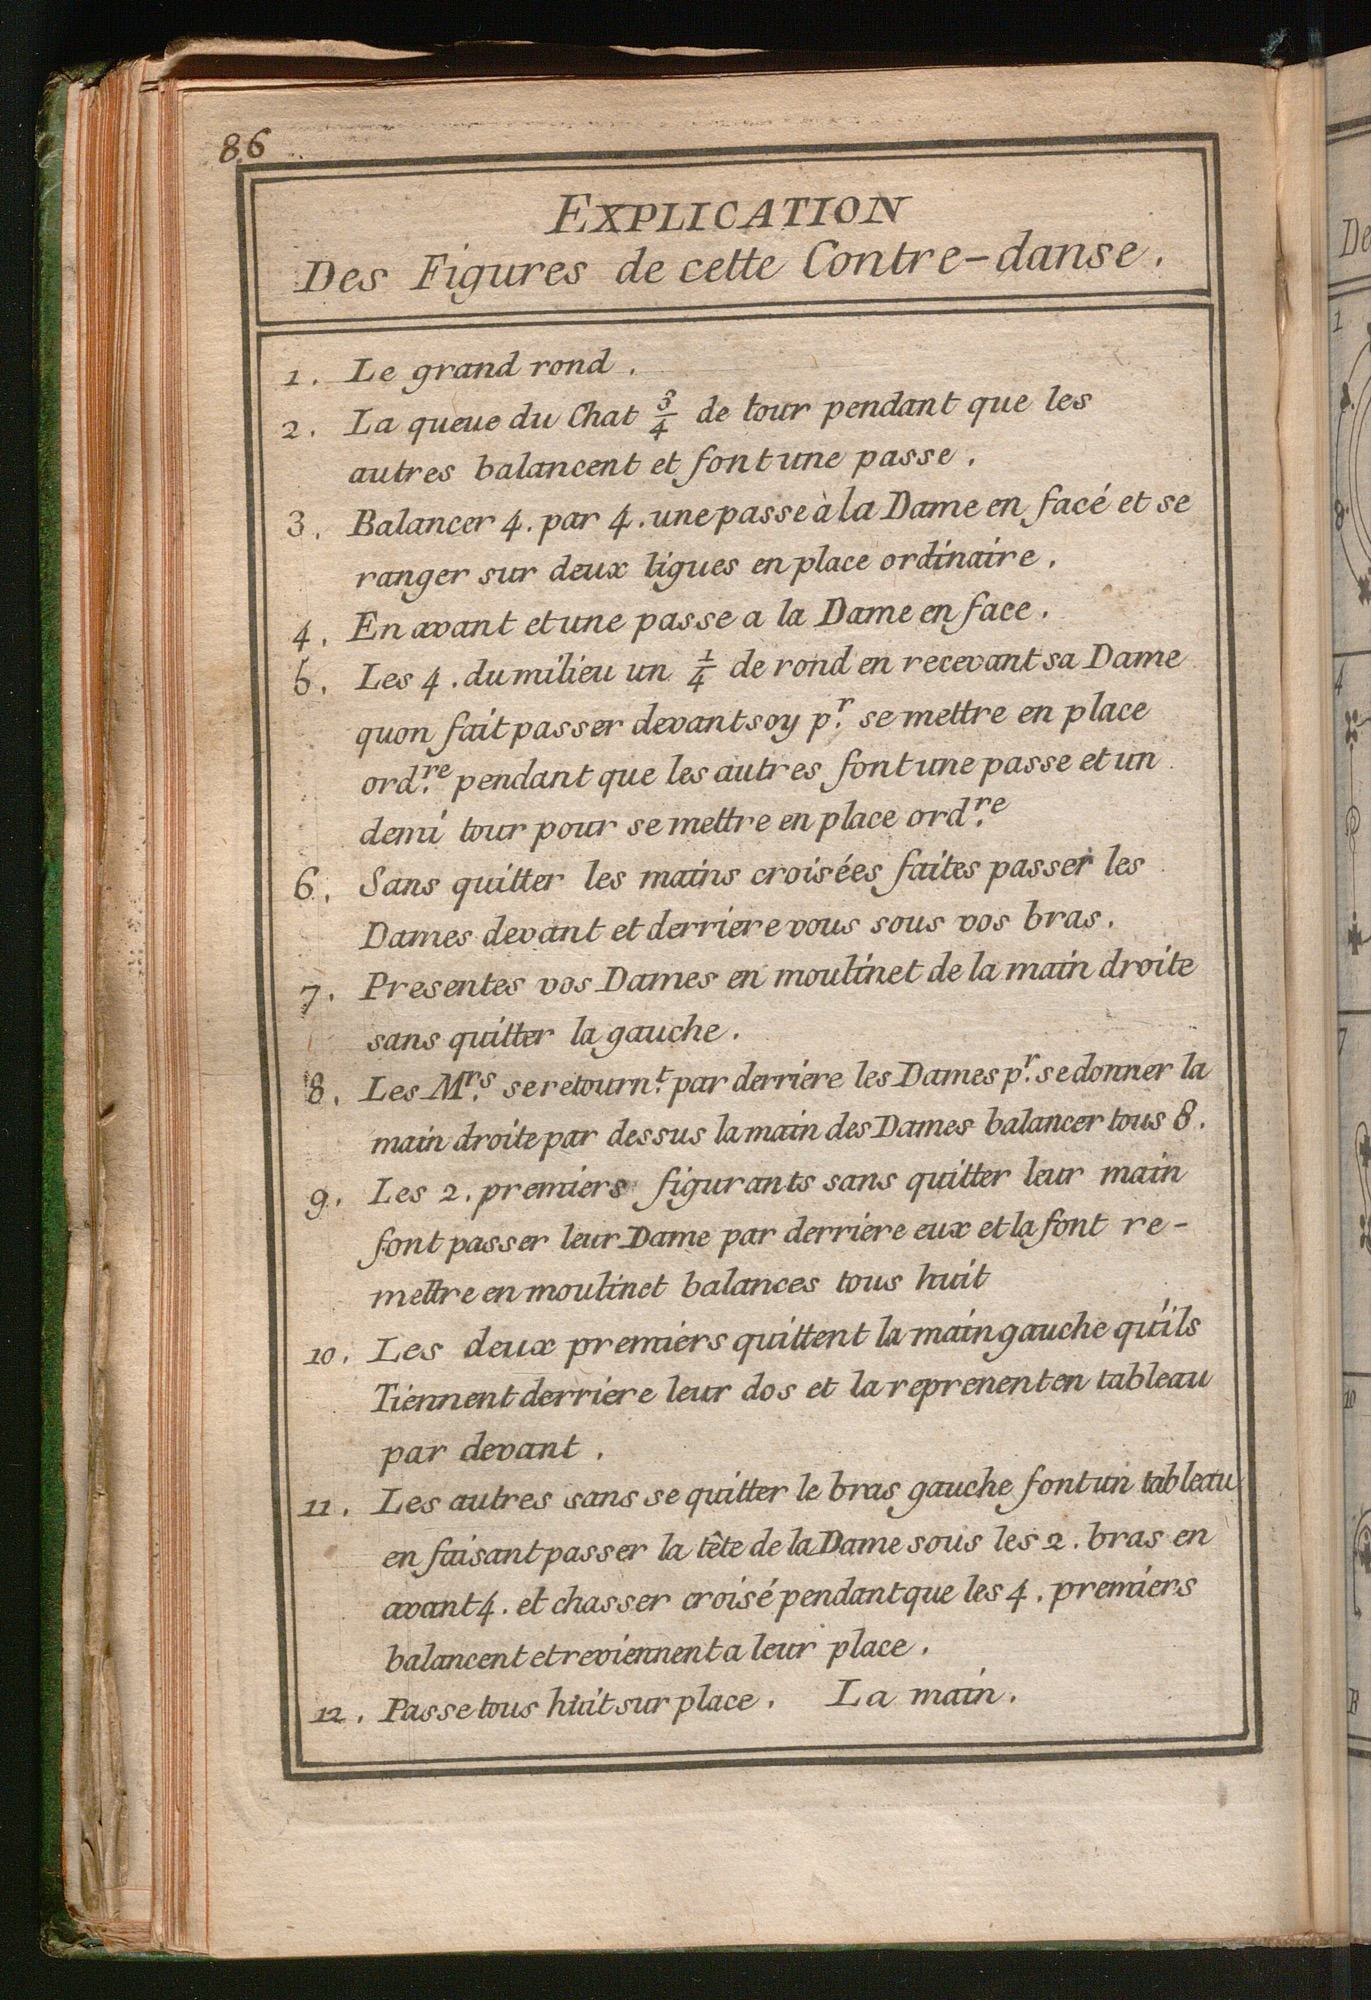 86
EXPLICATION
Des Figures de cette Contre-danse.
1. Le grand rond.
2. La queue du Chat 3/4 de tour pendant que les
autres balancent et font une passe.
3. Balancer 4. par 4. une passe à la Dame en facé et se
ranger sur deux ligues en place ordinaire.
4. En avant et une passe a la Dame en face.
5. Les 4. du milieu un 1/4 de rond en recevant sa Dame
quon fait passer devant soy pr. se mettre en place
ord.re pendant que les autres font une passe et un
demi tour pour se mettre en place ord.re
6. Sans quitter les mains croisées faites passer les
Dames devant et derriere vous sous vos bras.
7. Presentes vos Dames en moulinet de la main droite
sans quitter la gauche.
8. Les M.rs se retourn.t par derriere les Dames p.r se donner la
main droite par dessus la main des Dames balancer tous 8.
9. Les 2. premiers figurants sans quitter leur main
font passer leur Dame par derriere eux et la font re-
mettre en moulinet balances tous huit
10. Les deux premiers quittent la main gauche qu'ils
Tiennent derriere leur dos et la reprenent en tableau
par devant.
11. Les autres sans se quitter le bras gauche font un tableau
en faisant passer la tête de la Dame sous les 2. bras en
avant 4. et chasser croisé pendant que les 4. premiers
balancent et reviennent a leur place.
12. Passe tous huit sur place. La main.
De
1
8
4
7
10
B